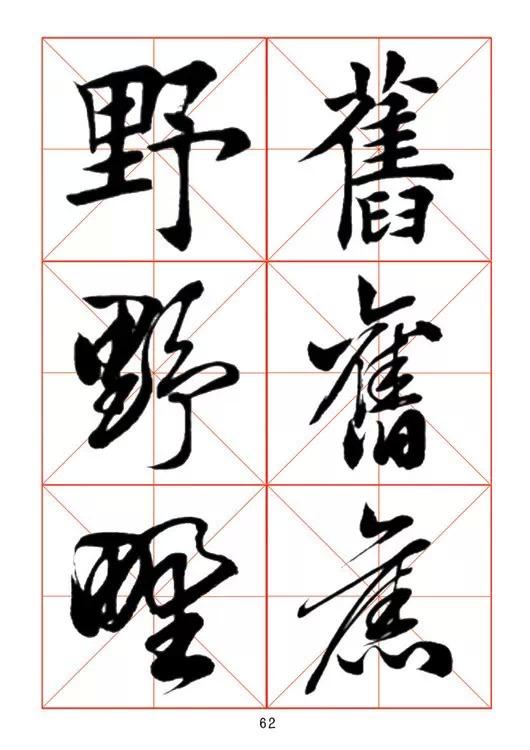 舊
舊
舊
野
野
野
62